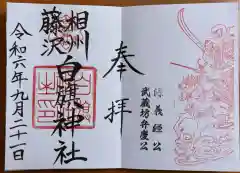 奉拝
源義経公
武蔵坊弁慶公
相州
藤沢
白旗神社
令和六年九月二十一日